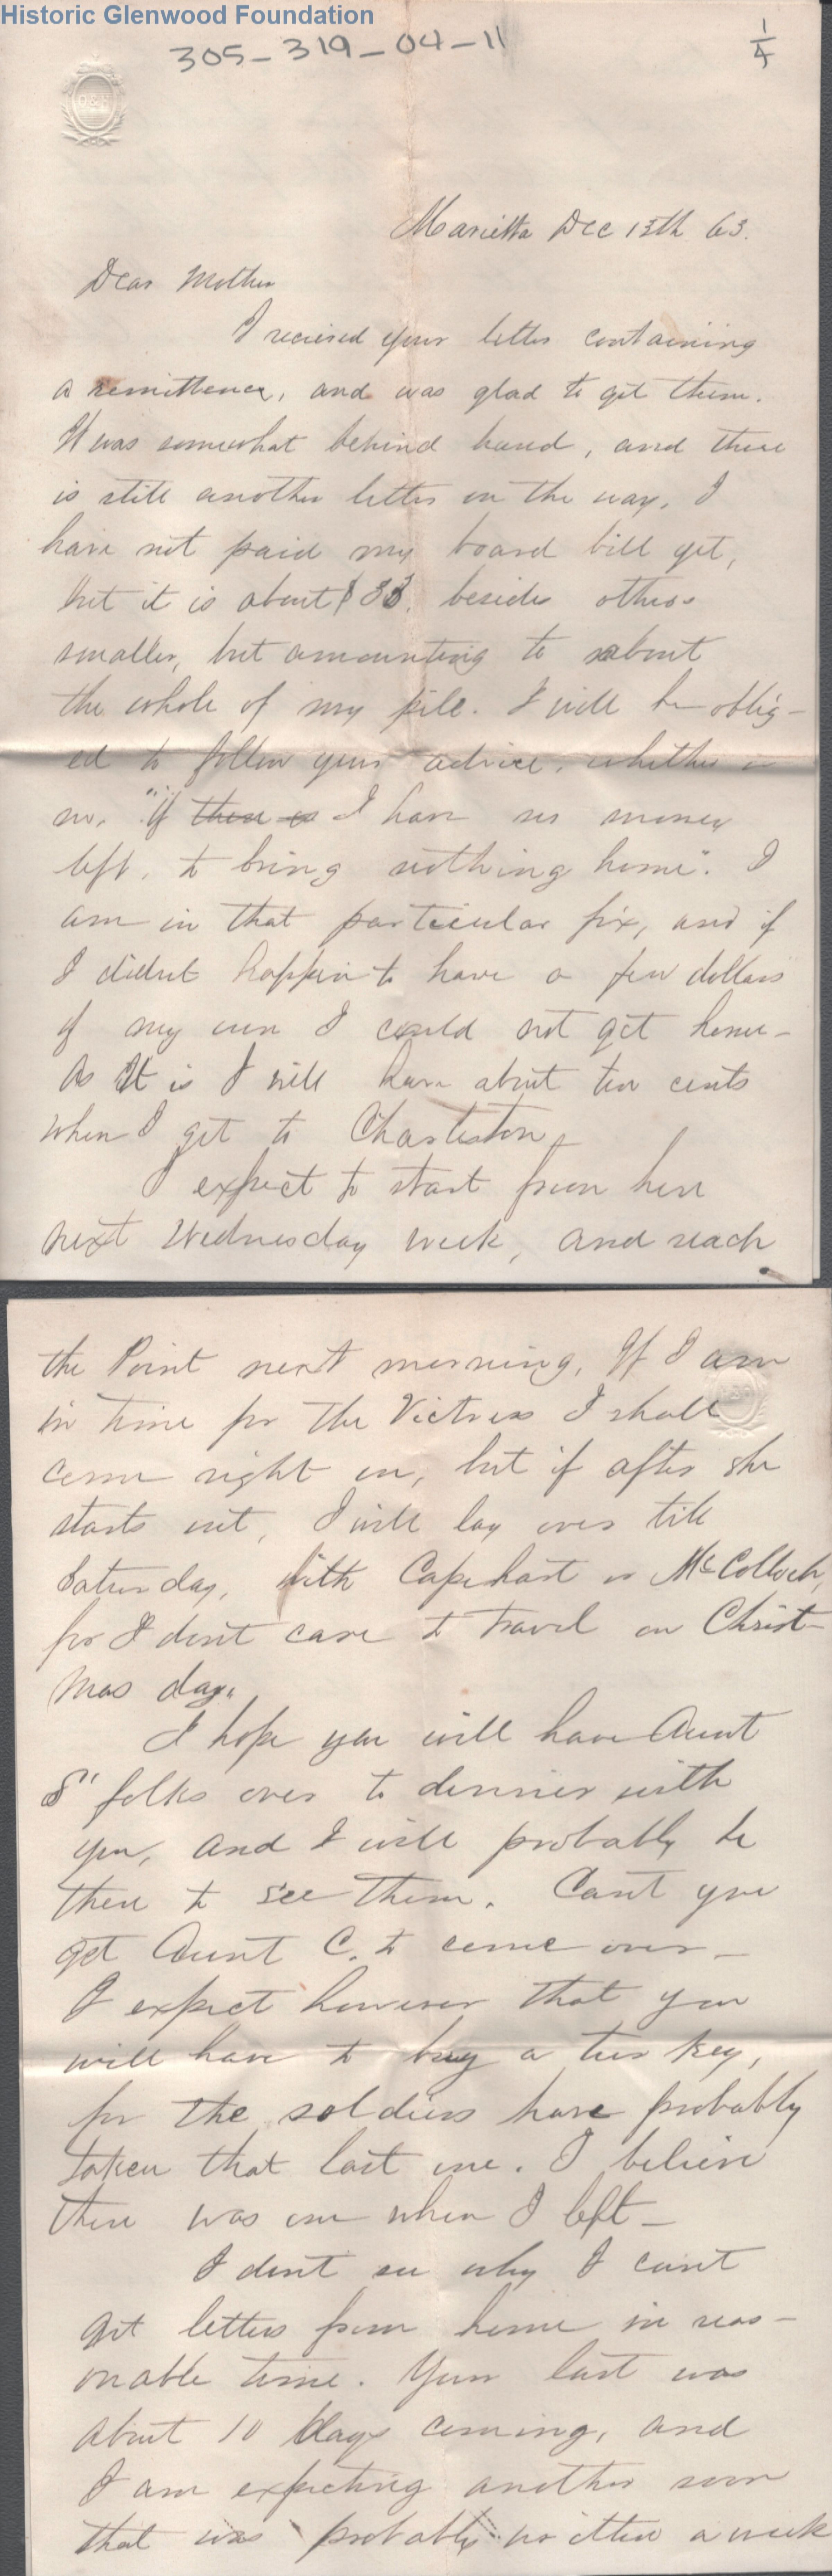 Historic Glenwood Foundation
305-319-04-11
1/4
Marietta Dec 13th 63.
Dear Mother
I recieved your letter containing
a remittence, and was glad to get them.
It was somewhat behind hand, and there
is still another letter on the way. I
have not paid my board bill yet,
but it is about $33. besides others
smaller, but amounting to about
the whole of my pile. I will be oblig-
ed to follow your advice, whether or
no. "if there is I have no money
left, to bring nothing home". I
am in that particular fix, and if
I didnt happen to have a few dollars
of my own I could not get home-
As It is I will have about ten cents
when I get to Charleston.
I expect to start from here
next Wednesday week, and reach
the Point next morning. If I am
in time for the Victress I shall
come right on, but if after she
starts out, I will lay over till
Saturday, with Capehart or McColloch,
for I dont care to travel on Christ-
mas day.
I hope you will have Aunt
S" folks over to dinner with
you, and I will probably be
there to see them. Cant you
get Aunt C. to come over-
I expect however that you
will have to buy a turkey,
for the soldiers have probably
taken that last one. I believe
there was one when I left-
I dont see why I cant
get letters from home in reas-
onable time. Your last was
about 10 days coming, and
I am expecting another soon
that was probably written a week